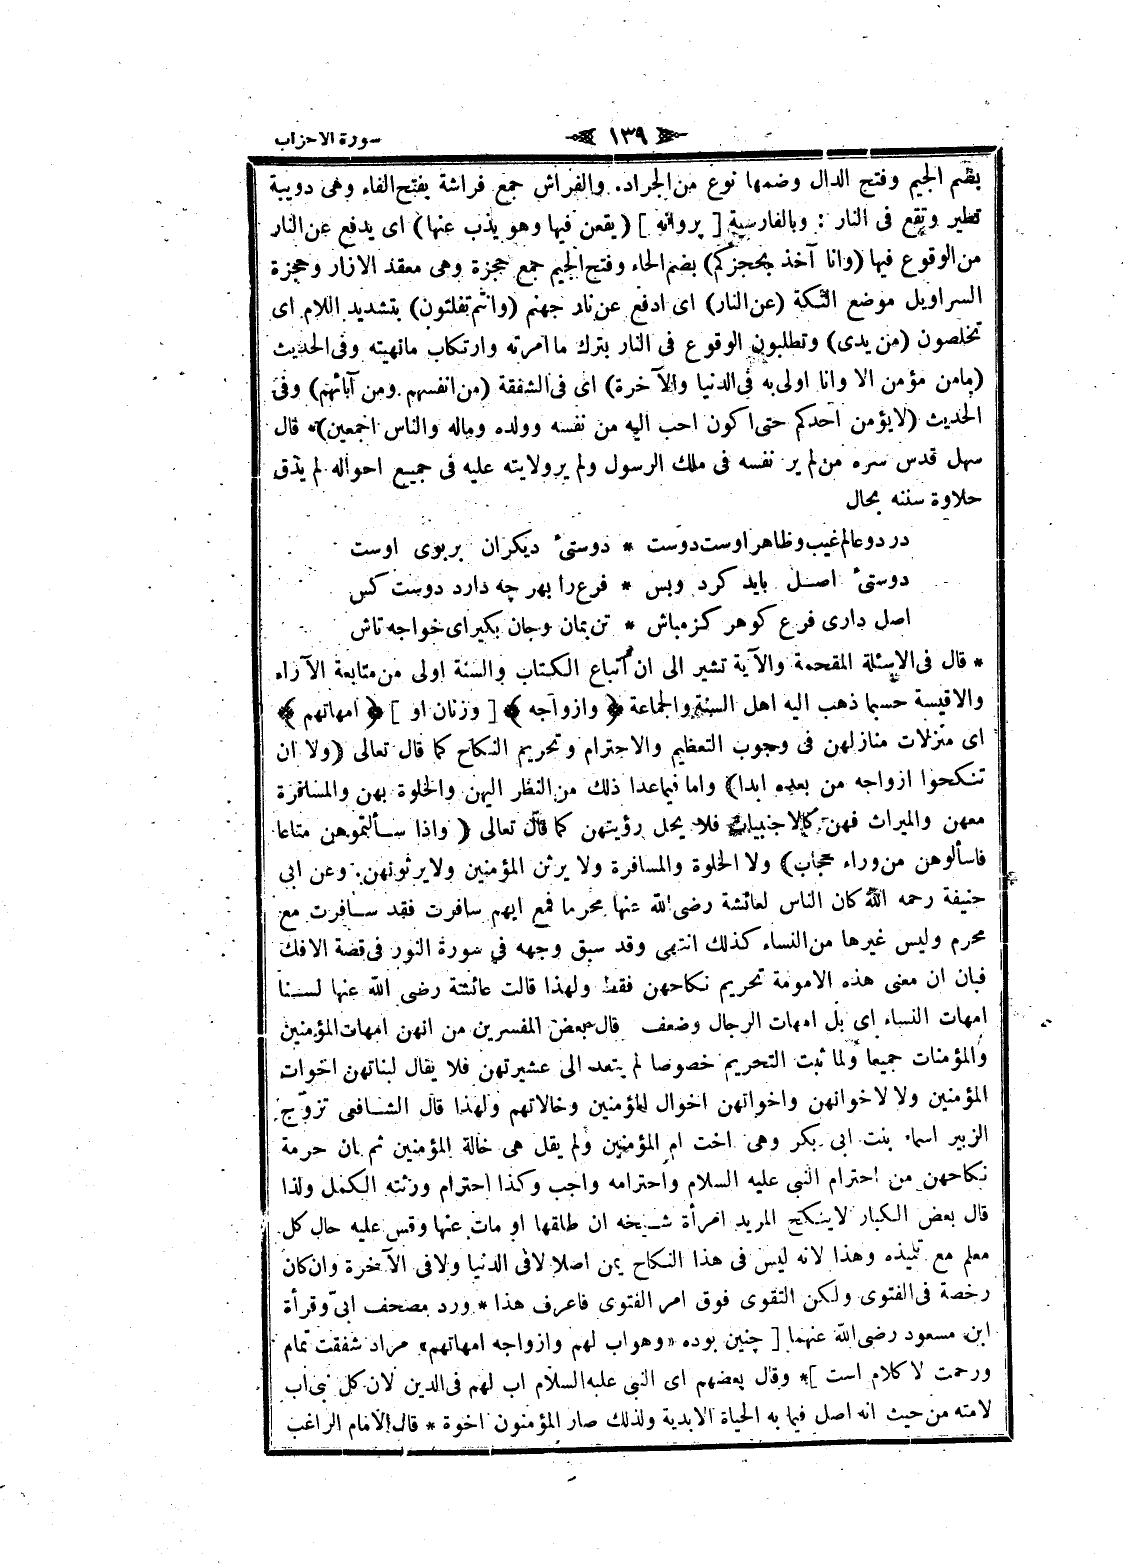 سورة الاحزاب
١٣٩
بضم الجيم وفتح الدال وضمها نوع من الجراد، والفراش جمع فراشة بفتح الفاء وهى دويبة
تطير وتقع فى النار : وبالفارسية [ پروانه ] (يقعن فيها وهو يذب عنها) اى يدفع عن النار
من الوقوع فيها (وانا آخذ بحجزكم) بضم الحاء وفتح الجيم جمع حجزة وهى معقد الازار وحجزة
السراويل موضع التكة (عن النار) اى ادفع عن نار جهنم (وانتم تفلتون) بتشديد اللام اى
تخلصون (من يدى) وتطلبون الوقوع فى النار بترك ما امرته وارتكاب مانهيته وفى الحديث
(مامن مؤمن الا وانا اولى به فى الدنيا والآخرة) اى فى الشفقة (من انفسهم ومن آبائهم) وفى
الحديث (لا يؤمن احدكم حتى اكون احب اليه من نفسه وولده وماله والناس اجمعين)* قال
سهل قدس سره من لم ير نفسه فى ملك الرسول ولم ير ولايته عليه فى جميع احواله لم يذق
حلاوة سننه بحال
در دو عالم غيب وظاهر اوست دوست * دوستىء ديكران بر بوى اوست
دوستىء اصل بايد كرد وبس * فرع را بهر چه دارد دوست كس
اصل دارى فرع كو هركز مباش * تن بمان وجان بكير اى خواجه تاش
* قال فى الاسئلة المقحمة والآية تشير الى ان اتباع الكتاب والسنة اولى من متابعة الآراء
والاقيسة حسبما ذهب اليه اهل السنة والجماعة ﴿ وازواجه ﴾ [ وزنان او ] ﴿ امهاتهم ﴾
اى منزلات منازلهن فى وجوب التعظيم والاحترام وتحريم النكاح كما قال تعالى (ولا ان
تنكحوا ازواجه من بعده ابدا) واما فيما عدا ذلك من النظر اليهن والخلوة بهن والمسافرة
معهن والميراث فهن كالاجنبيات فلا يحل رؤيتهن كما قال تعالى ( واذا سألتموهن متاعا
فاسألوهن من وراء حجاب) ولا الخلوة والمسافرة ولا يرثن المؤمنين ولا يرثونهن. وعن ابى
حنيفة رحمه الله كان الناس لعائشة رضى الله عنها محرما فمع ايهم سافرت فقد سافرت مع
محرم وليس غيرها من النساء كذلك انتهى وقد سبق وجهه في سورة النور فى قصة الافك
فبان ان معنى هذه الامومة تحريم نكاحهن فقط ولهذا قالت عائشة رضى الله عنها لسنا
امهات النساء اى بل امهات الرجال وضعف قال بعض المفسرين من انهن امهات المؤمنين
والمؤمنات جميعا ولما ثبت التحريم خصوصا لم يتعد الى عشيرتهن فلا يقال لبناتهن اخوات
المؤمنين ولا لاخوانهن واخواتهن اخوال المؤمنين وخالاتهم ولهذا قال الشافعى تزوّج
الزبير اسماء بنت ابى بكر وهى اخت ام المؤمنين ولم يقل هى خالة المؤمنين ثم ان حرمة
نكاحهن من احترام النبى عليه السلام واحترامه واجب وكذا احترام ورثته الكمل ولذا
قال بعض الكبار لا ينكح المريد امرأة شيخه ان طلقها او مات عنها وقس عليه حال كل
معلم مع تلميذه وهذا لانه ليس فى هذا النكاح يمن اصلا لافى الدنيا ولافى الآخرة وان كان
رخصة فى الفتوى ولكن التقوى فوق امر الفتوى فاعرف هذا * ورد مصحف ابىّ وقرأة
ابن مسعود رضى الله عنهما [ چنين بوده «وهو اب لهم وازواجه امهاتهم» مراد شفقت تمام
ورحمت لا كلام است ]* وقال بعضهم اى النبى عليه السلام اب لهم فى الدين لان كل نبى اب
لامته من حيث انه اصل فيما به الحياة الابدية ولذلك صار المؤمنون اخوة * قال الامام الراغب